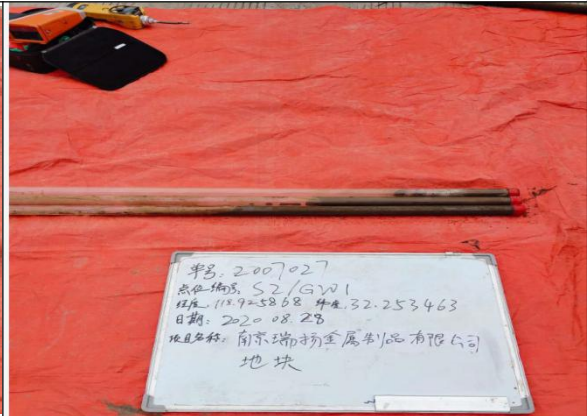 单号: 2007027
点位编号 S2/GW1
经度: 118.925868 纬度: 32.253463
日期: 2020.08.28
项目名称: 南京瑞扬金属制品有限公司
地块